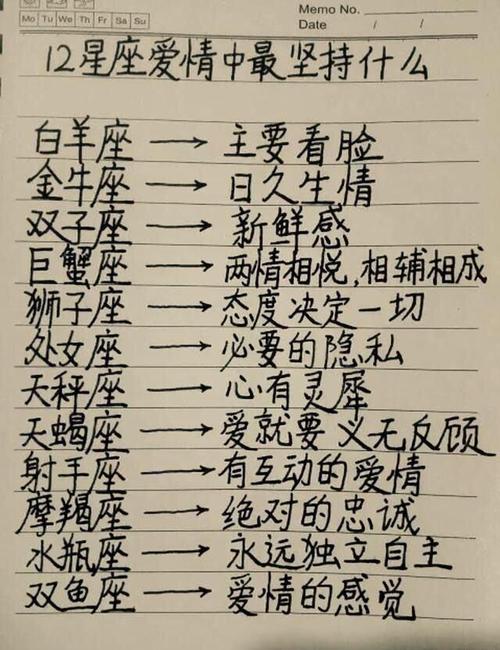 Memo No.
Mo Tu We Th Fr Sa Su
Date / /
12星座爱情中最坚持什么
白羊座 → 主要看脸
金牛座 → 日久生情
双子座 → 新鲜感
巨蟹座 → 两情相悦,相辅相成
狮子座 → 态度决定一切
处女座 → 必要的隐私
天秤座 → 心有灵犀
天蝎座 → 爱就要义无反顾
射手座 → 有互动的爱情
摩羯座 → 绝对的忠诚
水瓶座 → 永远独立自主
双鱼座 → 爱情的感觉